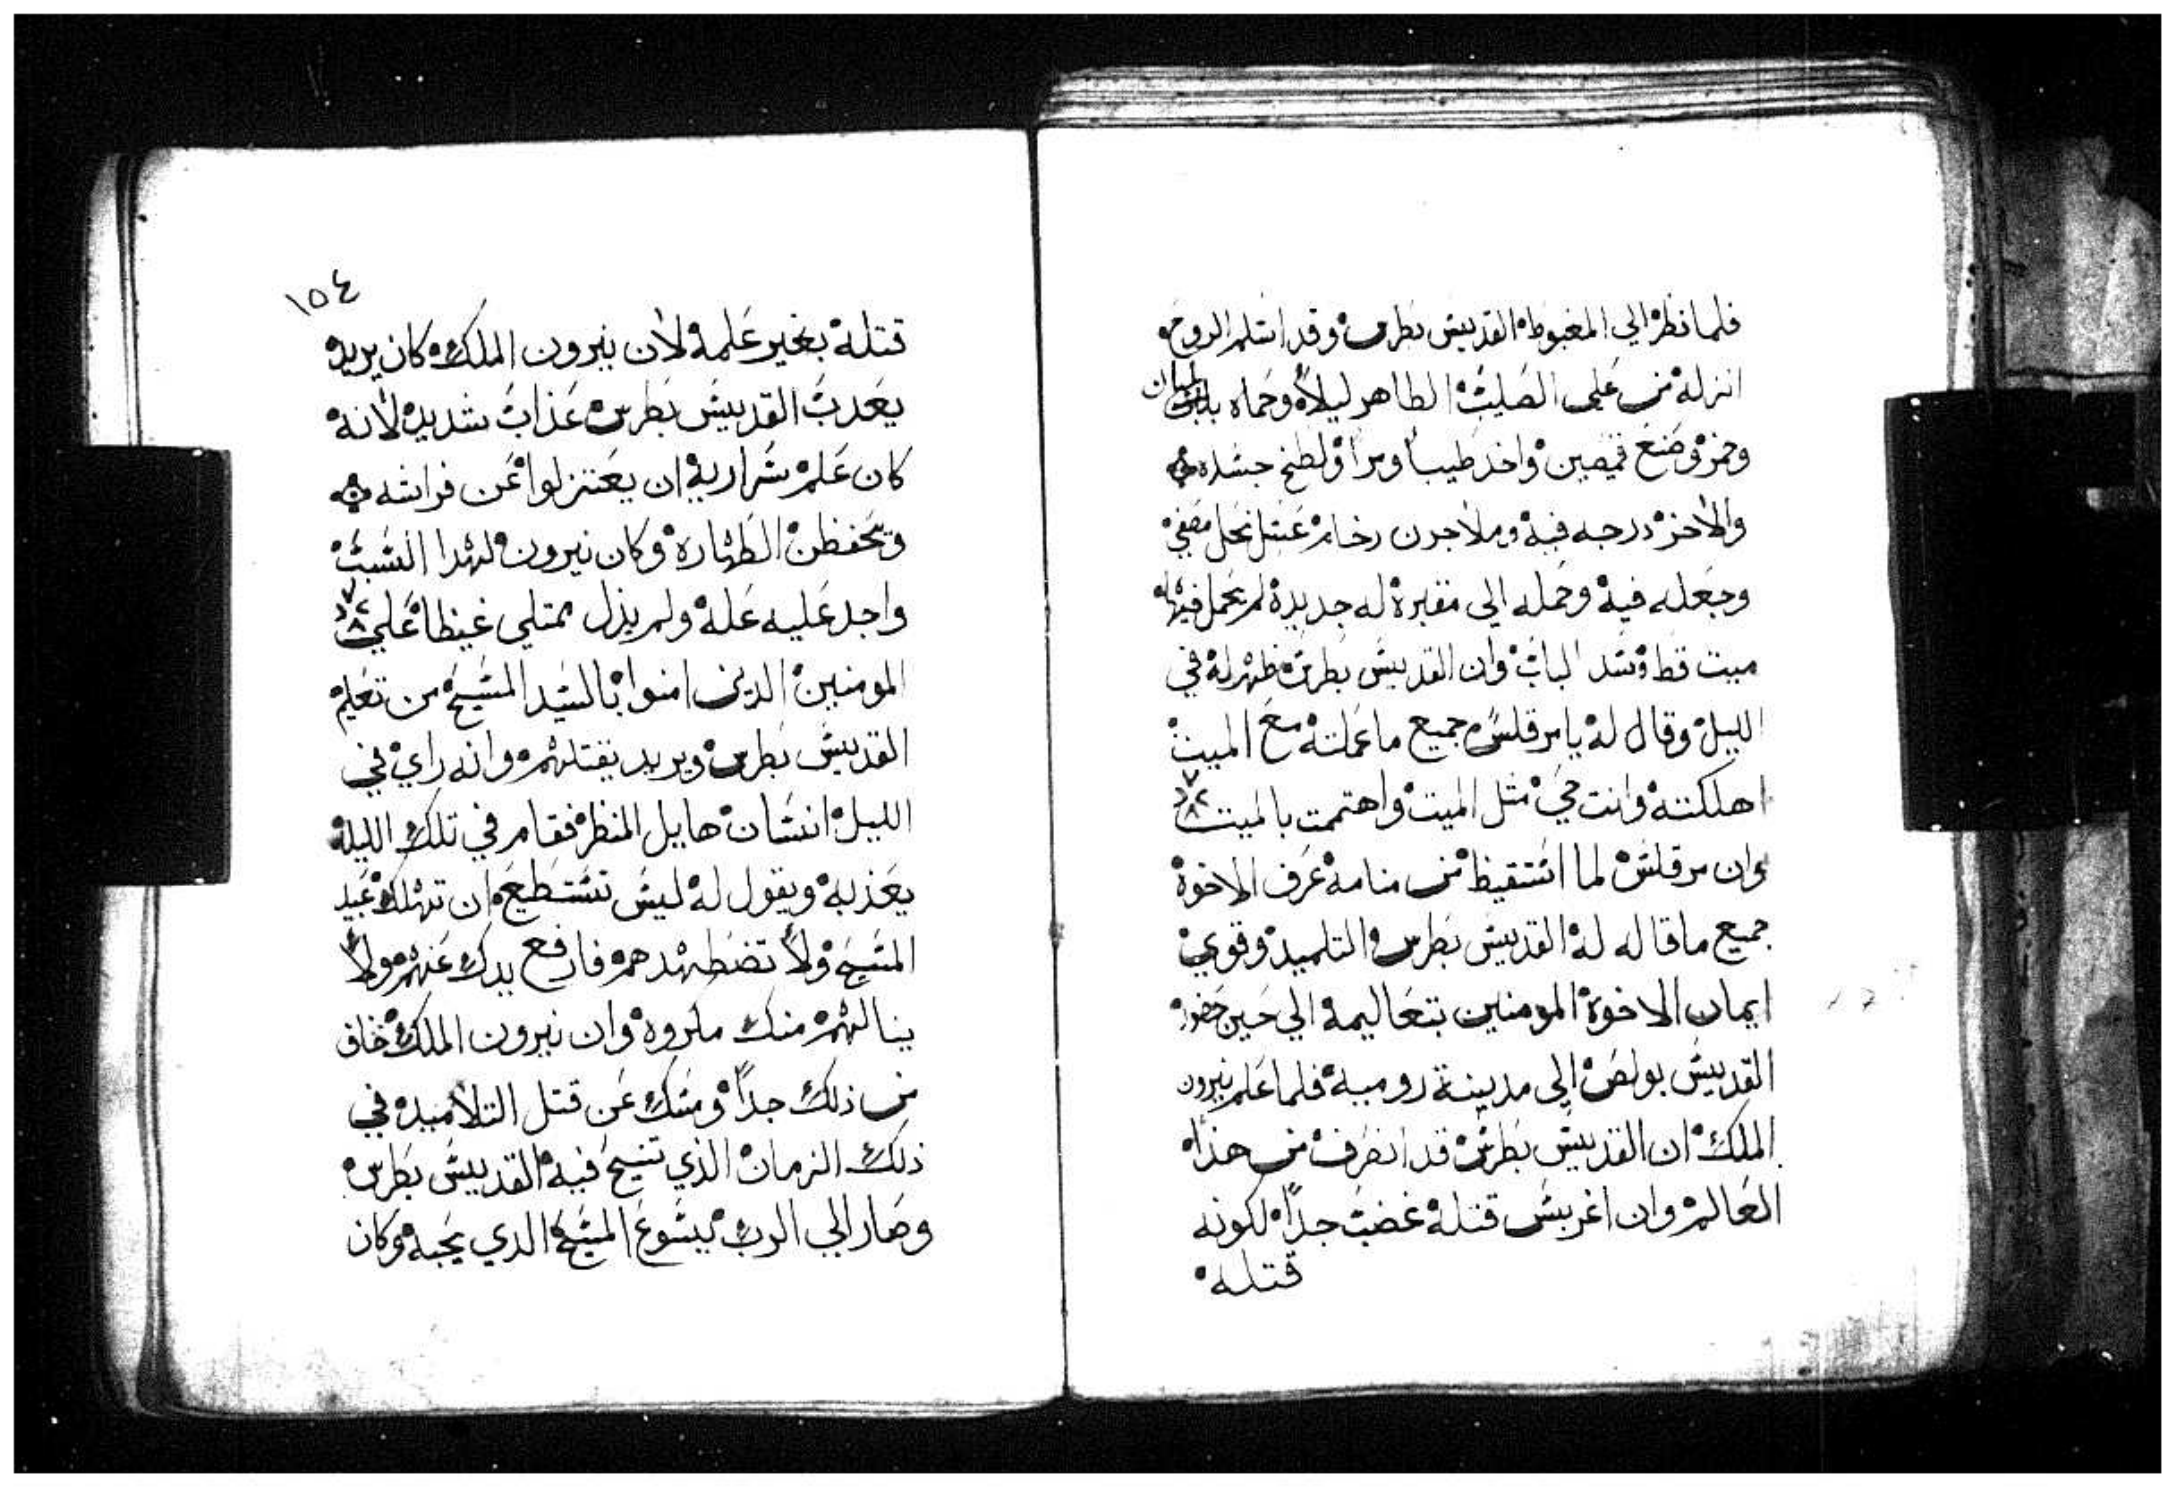 فلما نظر الي المغبوط القديس بطرس وقد اسلم الروح
انزله من علي الصليب الطاهر ليلاً وحماه باللبان
وخمر وصنع قميصين واخد طيباً ومراً ولطخ جسده
والاخر درجه فيه وملا جرن رخام عسل نحل مصفي
وجعله فيه وحمله الي مقبرة له جديدة لم يحمل فيها
ميت قط وسد الباب وان القديس بطرس ظهر له في
الليل وقال له يا مرقلس جميع ما عملته مع الميت
اهلكته وانت حي مثل الميت واهتممت بالميت
وان مرقلس لما استقيظ من منامه عرف الاخوة
جميع ما قاله له القديس بطرس التلميد وقوي
ايمان الاخوة المومنين بتعاليمه الي حين حضور
القديس بولص الي مدينة رومية فلما علم نيرون
الملك ان القديس بطرس قد انصرف من هذا
العالم وان اغربس قتله غضب جداً لكونه
قتله
١٥٤
قتله بغير علمه لان نيرون الملك كان يريد
يعدب القديس بطرس عذاب شديد لانه
كان علم سراريه ان يعتزلوا عن فراشه
ويحفظن الطهارة وكان نيرون لهدا السبب
واجد عليه علة ولم يزل ممتلي غيظاً علي
المومنين الدين امنوا بالسيد المسيح من تعليم
القديس بطرس ويريد يقتلهم وانه راي في
الليل انسان هايل المنظر فقام في تلك الليلة
يعذبه ويقول له ليس تستطيع ان تهلك عبيد
المسيح ولا تضطهدهم فارفع يدك عنهم ولا
ينالهم منك مكروه وان نيرون الملك خاف
من ذلك جداً ومسك عن قتل التلاميد في
ذلك الزمان الذي تنيح فيه القديس بطرس
وصار الي الرب يسوع المسيح الدي يحبه وكان